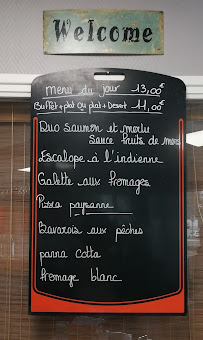 Welcome
menu du jour 13,00€
Buffet + plat ou plat + Dessert 11,00€
Duo saumon et merlu
sauce fruits de mers
Escalope à l'indienne
Galette aux fromages
Pizza paysanne
Bavarois aux pêches
panna cotta
fromage blanc